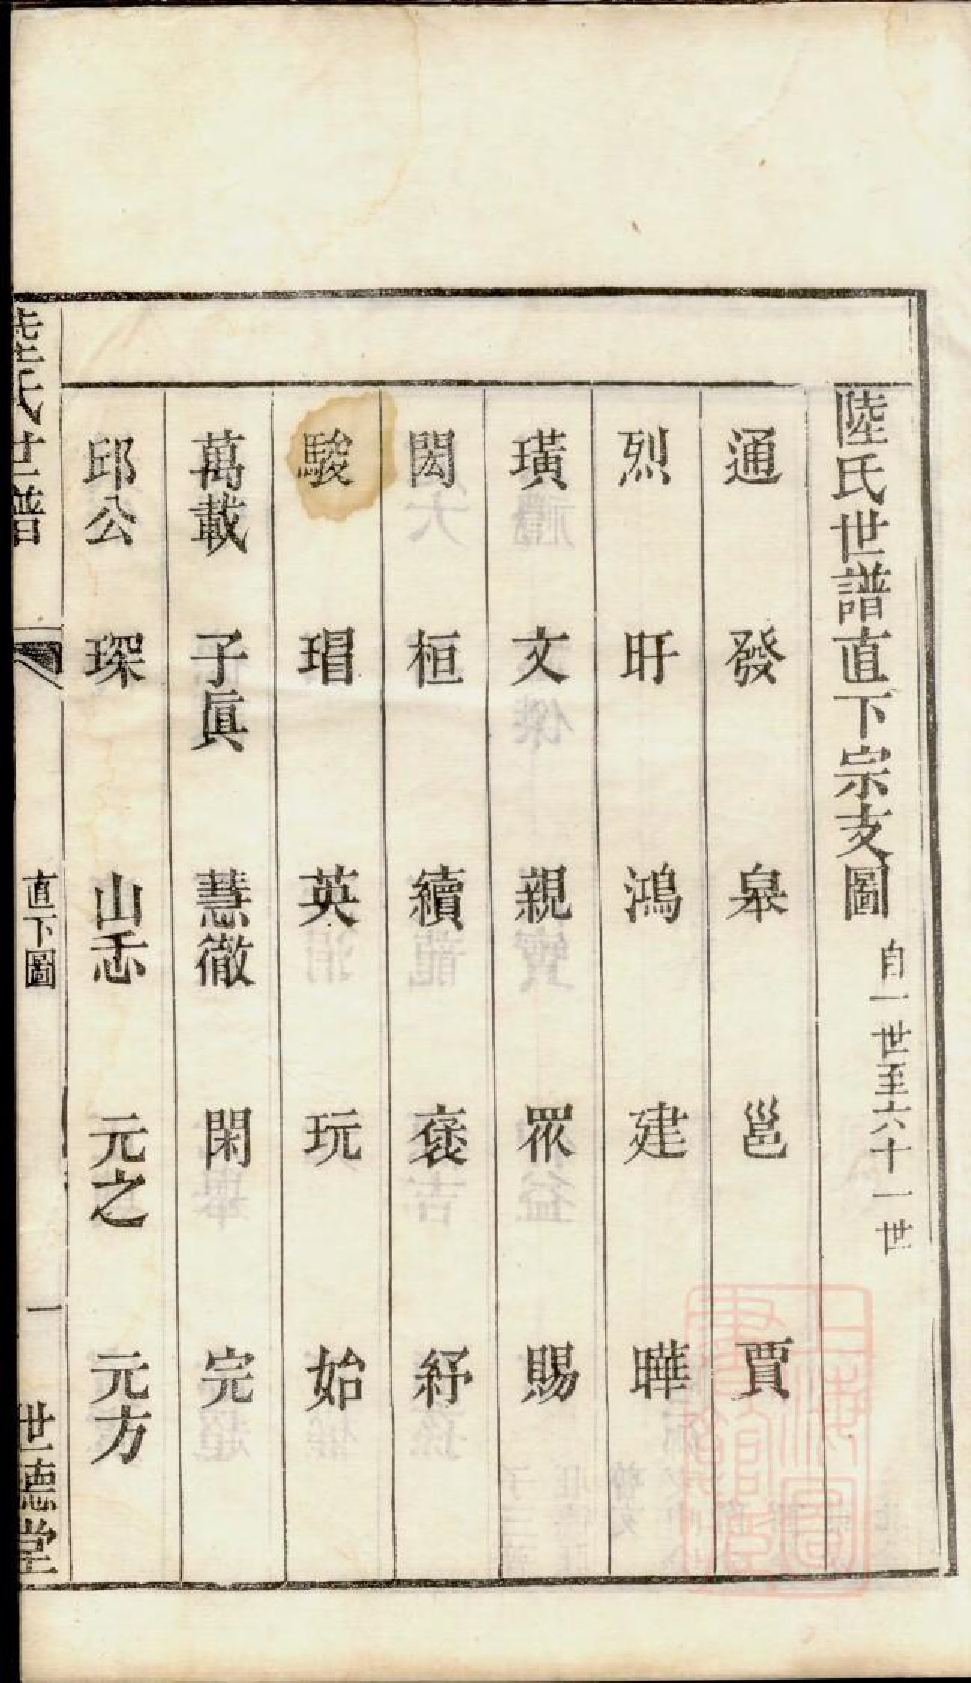 陸氏世譜直下宗支圖 自一世至六十一世
通 發 皋 邕 賈
烈 旴 鴻 建 曄
璜 文 親 眾 賜
閎 桓 續 褒 紓
駿 瑁 英 玩 始
萬載 子眞 慧徹 閑 完
邱公 琛 山 元之 元方
陸氏世譜 直下圖 一 世德堂
上海圖書館藏